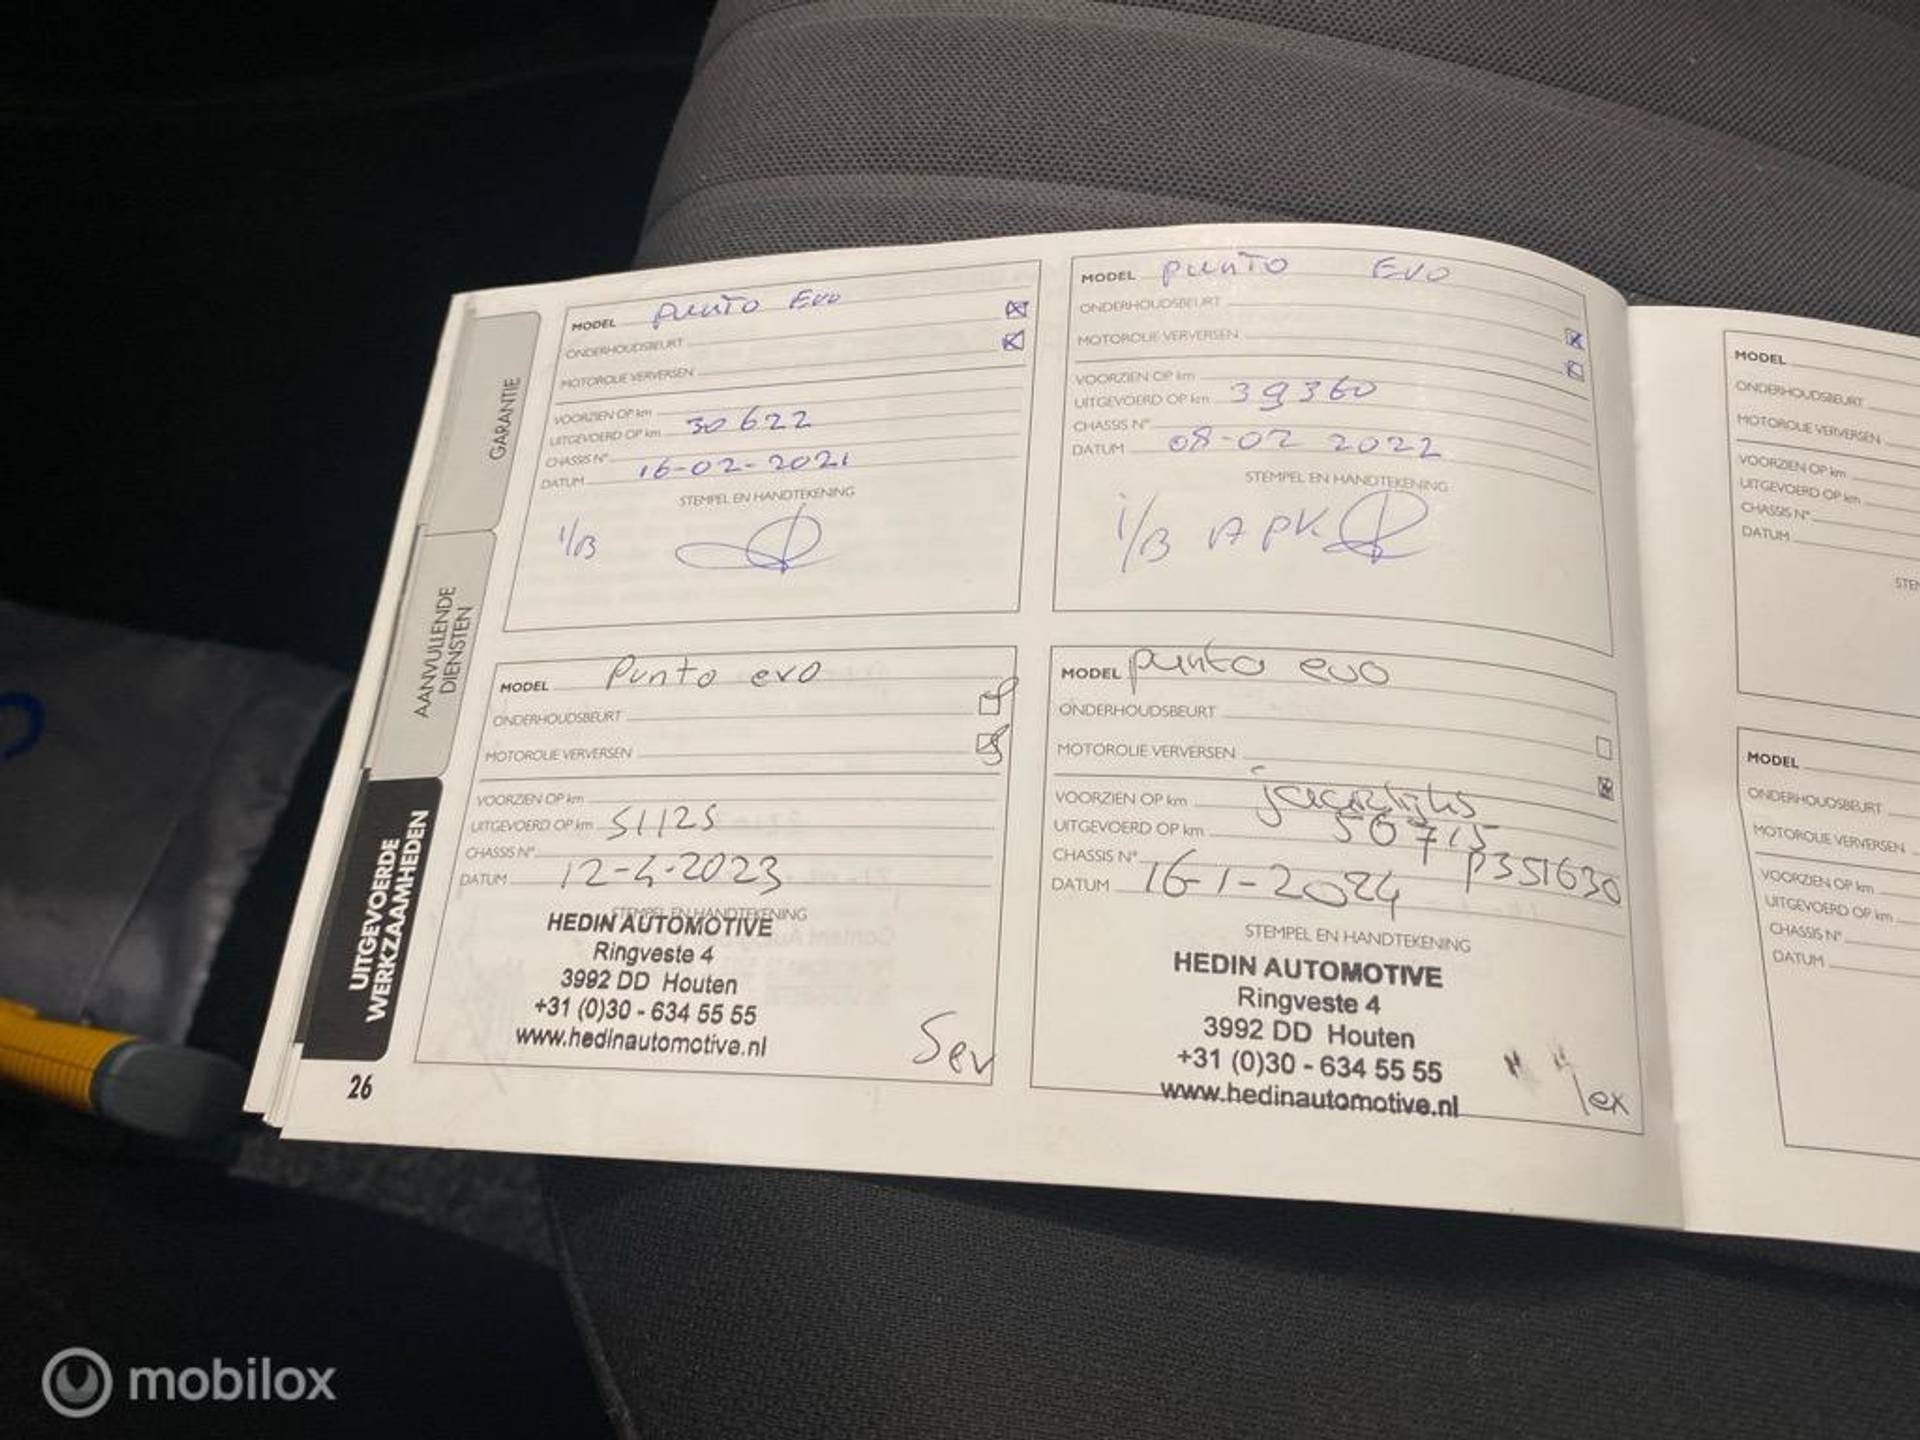 GARANTIE
AANVULLENDE
DIENSTEN
UITGEVOERDE
WERKZAAMHEDEN
26
MODEL Punto Evo
ONDERHOUDSBEURT
MOTOROLIE VERVERSEN
VOORZIEN OP km
UITGEVOERD OP km 30622
CHASSIS N°
DATUM 16-02-2021
STEMPEL EN HANDTEKENING
i/B
MODEL punto Evo
ONDERHOUDSBEURT
MOTOROLIE VERVERSEN
VOORZIEN OP km
UITGEVOERD OP km 39360
CHASSIS N°
DATUM 08-02 2022
STEMPEL EN HANDTEKENING
i/B APK
MODEL Punto evo
ONDERHOUDSBEURT
MOTOROLIE VERVERSEN
VOORZIEN OP km
UITGEVOERD OP km 51125
CHASSIS N°
DATUM 12-4-2023
STEMPEL EN HANDTEKENING
HEDIN AUTOMOTIVE
Ringveste 4
3992 DD Houten
+31 (0)30 - 634 55 55
www.hedinautomotive.nl
Sev
MODEL punto evo
ONDERHOUDSBEURT
MOTOROLIE VERVERSEN
VOORZIEN OP km jaarlijks
UITGEVOERD OP km 56715
CHASSIS N° P351630
DATUM 16-1-2024
STEMPEL EN HANDTEKENING
HEDIN AUTOMOTIVE
Ringveste 4
3992 DD Houten
+31 (0)30 - 634 55 55
www.hedinautomotive.nl
MODEL
ONDERHOUDSBEURT
MOTOROLIE VERVERSEN
VOORZIEN OP km
UITGEVOERD OP km
CHASSIS N°
DATUM
STE
MODEL
ONDERHOUDSBEURT
MOTOROLIE VERVERSEN
VOORZIEN OP km
UITGEVOERD OP km
CHASSIS N°
DATUM
mobilox